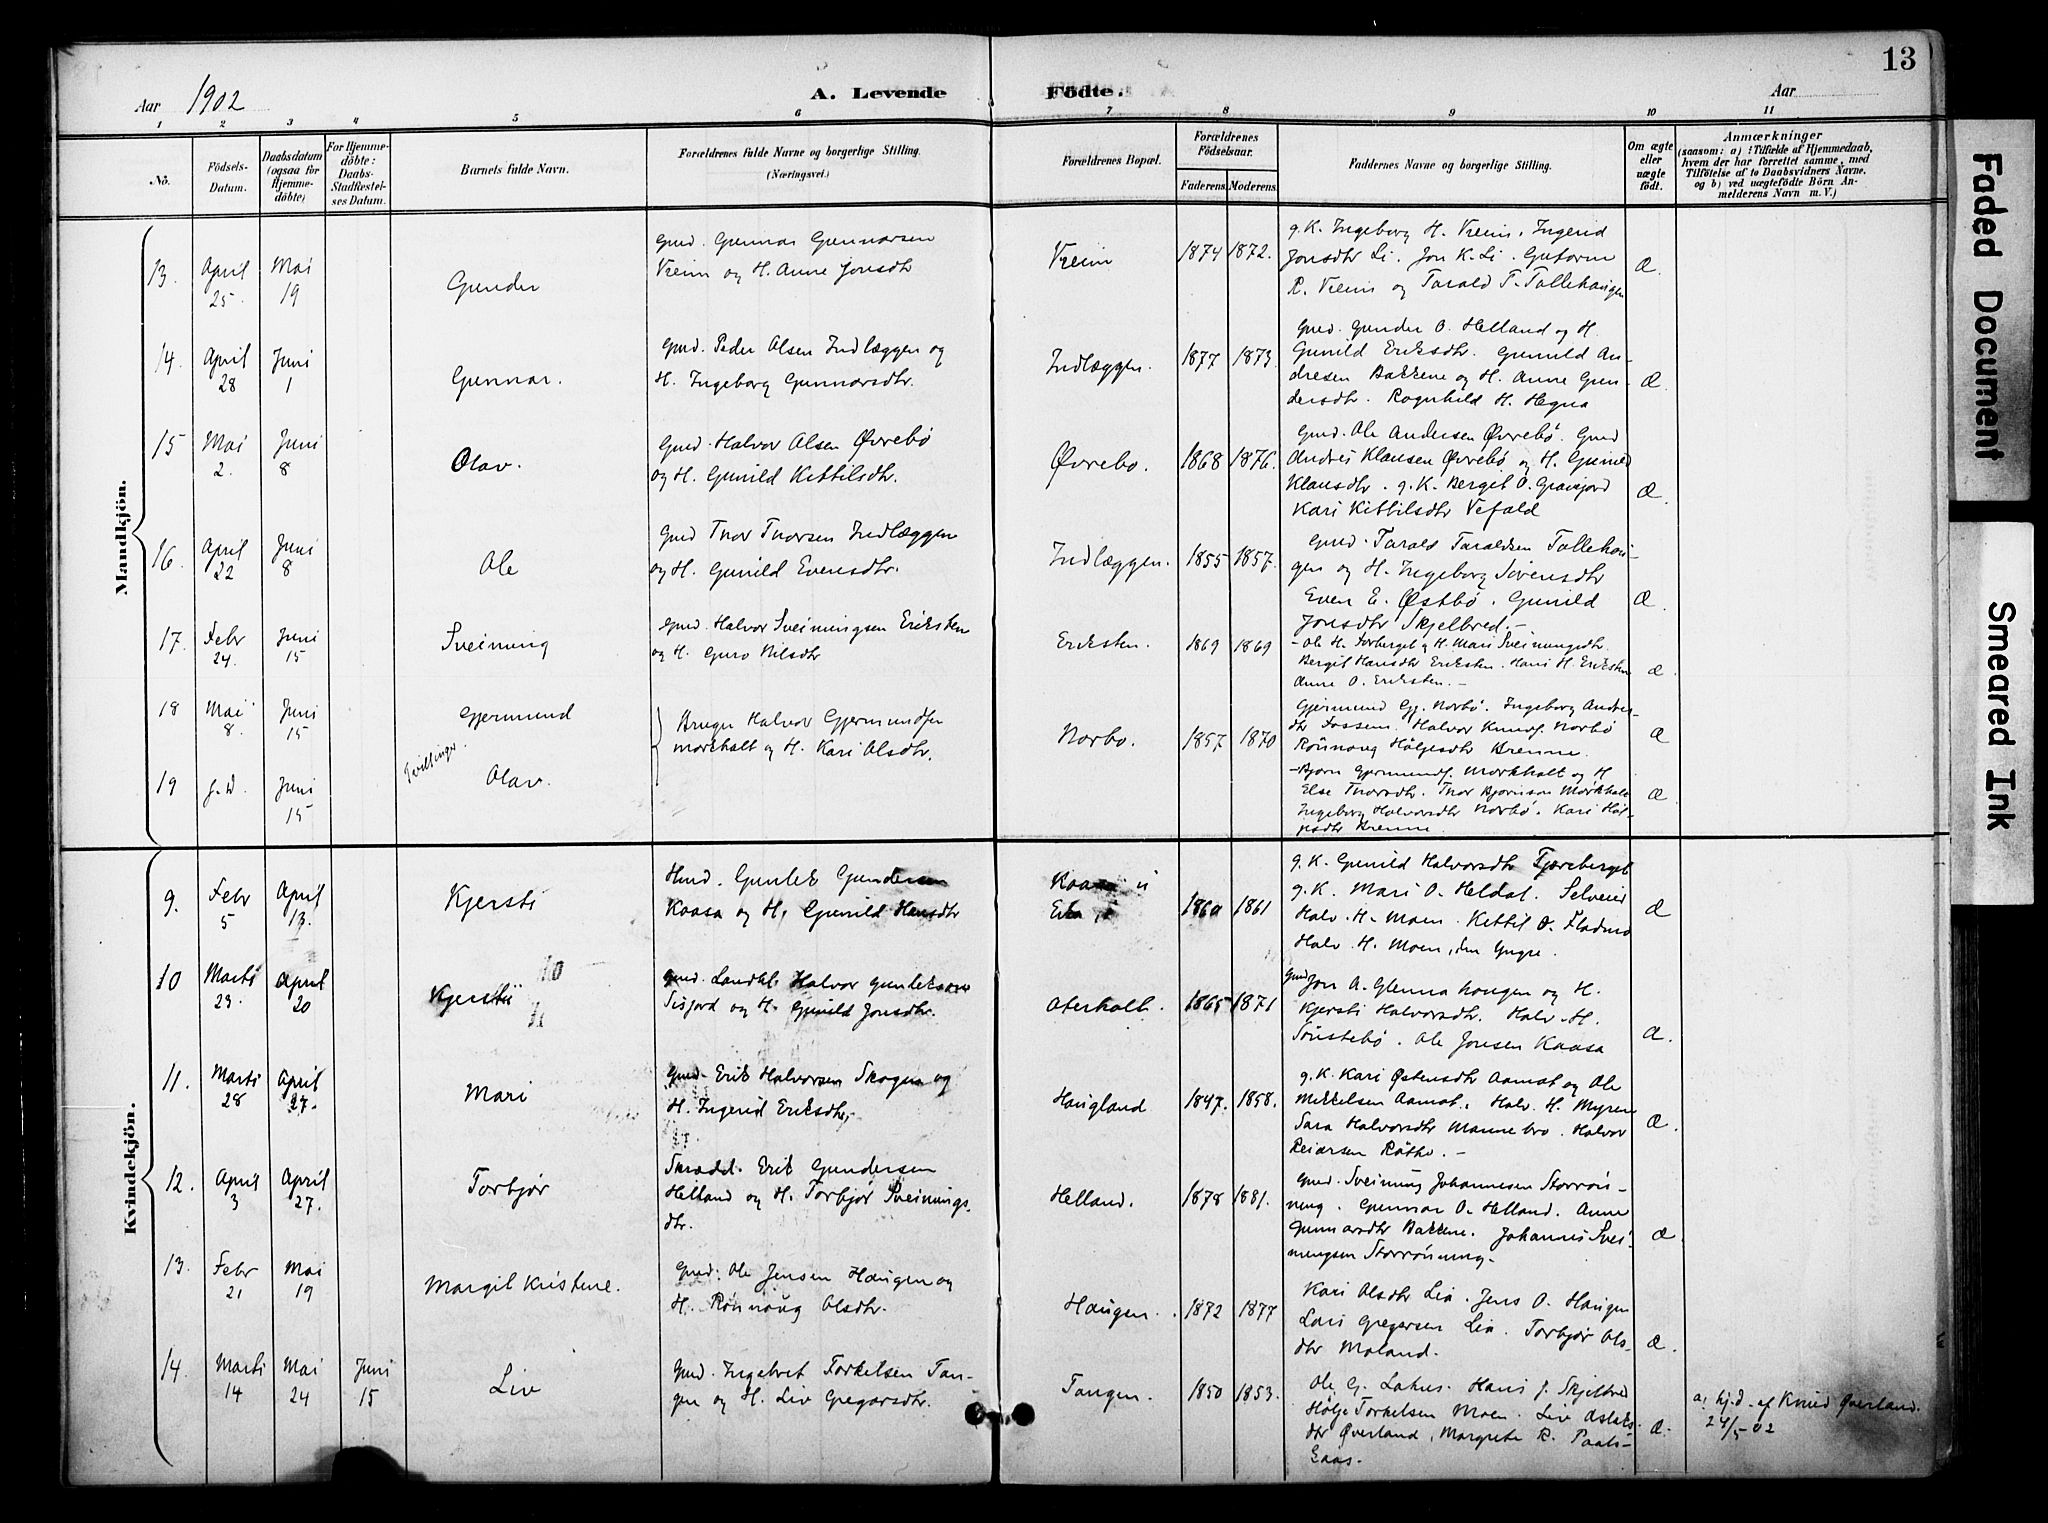 13
Aar 1902
A. Levende Födte.
Aar
1 2 3 4 5 6 7 8 9 10 11
No.
Födsels-Datum.
Daabsdatum (ogsaa for Hjemme-döbte)
For Hjemme-döbte: Daabs-Stadfæstel-ses Datum.
Barnets fulde Navn.
Forældrenes fulde Navne og borgerlige Stilling.
(Næringsvei.)
Forældrenes Bopæl.
Forældrenes Födselsaar.
Faderens. Moderens.
Faddernes Navne og borgerlige Stilling.
Om ægte eller uægte födt.
Anmærkninger
(saasom: a) i Tilfælde af Hjemmedaab, hvem der har forrettet samme, med Tilföielse af to Daabsvidners Navne. og b) ved uægtefödte Börn An-melderens Navn m. V.)
Mandkjön.
13. April 25. Mai 19 Gunder
Gmd. Gunnar Gunnarsen
Vreim og H. Anne Jonsdtr
Vreim 1874 1872.
g. K. Ingeborg H. Vreim. Ingerid
Jonsdtr Li. Jon K. Li. Gutorm
R. Vreim og Tarald T. Tollehaugen
Æ.
14. April 28 Juni 1 Gunnar.
Gmd. Peder Olsen Indlæggen og
H. Ingeborg Gunnarsdtr.
Indlæggen. 1877 1873.
Gmd. Gunder O. Helland og H.
Gunild Eriksdtr. Gunild An-
dresen Bakkene og H. Anne Gun-
dersdtr. Ragnhild H. Hegna
Æ.
15 Mai 2. Juni 8 Olav.
Gmd. Halvor Olsen Øvrebö
og H. Gunild Kittilsdtr.
Øvrebo. 1868 1876.
Gmd. Ole Andersen Øvrebö. Gmd
Andres Klausen Øvrebö og H. Gunild
Klausdtr. g. K. Bergit O. Gravjord
Kari Kittilsdtr Vefald
Æ.
16. April 22 Juni 8 Ole
Gmd Tnor Tnorsen Indlæggen
og H. Gunild Evensdtr.
Indlæggen. 1855 1857.
Gmd. Tarald Taraldsen Tollehau-
gen og H. Ingeborg Svensdtr
Even E. Østbö. Gunild
Jonsdtr Skjelbred.-
Æ.
17. Febr 24. Juni 15 Sveinung
Gmd. Halvor Sveinungsen Eriksten
og H. Guro Nilsdtr
Eriksten. 1869 1869
- Ole H. Forberget og H. Mari Sveinungsdtr.
Bergit Hansdtr Eriksten. Hans H. Eriksten
Anne O. Eriksten.-
Æ.
18 Mai 8. Juni 15 Gjermund
Tvillinger.
Bruger Halvor Gjermundsen
Morkhalt og H. Kari Olsdtr.
Norbo. 1857 1870
Gjermund Gj. Norbö. Ingeborg Andres-
dtr Fossem. Halvor Knuds. Norbö
Rönnoug Hölgesdtr Brenne.
Æ
19 s. D. Juni 15 Olav.
- Björn Gjermunds. Morkhalt og H.
Else Tnorsdtr. Tnor Bjornson Mörkhalt
Ingeborg Halvorsdtr Norbö. Kari Höl-
gesdtr Brenne.
Æ.
Kvindekjön.
9. Febr 5 April 13. Kjersti
Hmd. Gunlek Gundersen
Kaasa og H. Gunild Hansdtr
Kaasa 1860 1861
g. K. Gunild Halvorsdtr
g. K. Mari O. Heldal. Selveier
Halv. H. Moen. Kittil O. Fladmo
Halv. H. Moen, den Yngre.
Æ
10 Marts 23. April 20 Kjersti
Gmd. Landhl. Halvor Gunleksen
Sisjord og H. Gunild Jonsdtr.
Oterholt. 1865 1871
Gmd Jon A. Glennahaugen og H.
Kjersti Halvorsdtr. Halv. H.
Sönstebö. Ole Jonsen Kaasa
Æ.
11. Marts 28 April 27. Mari
Gmd. Erik Halvorsen Skogen og
H. Ingerid Eriksdtr,
Haugland 1847. 1858.
g. K. Kari Østensdtr Aamot og Ole
Mikkelsen Aamot. Halv. H. Myren
Sara Halvorsdtr Mannebro. Halvor
Reiersen Röthe.-
Æ.
12. April 3 April 27. Torbjør
Skrædd. Erik Gundersen
Helland og H. Torbjør Sveinungs-
dtr.
Helland. 1878 1881.
Gmd. Sveinung Johannesen Storrön-
ning. Gunnar O. Helland. Anne
Gunnarsdtr Bakkene. Johannes Svei-
nungsen Storrönning.
Æ.
13. Febr 21 Mai 19 Margit Kristine.
Gmd. Ole Jensen Haugen og
H. Rönnoug Olsdtr.
Haugen. 1872 1877
Kari Olsdtr Lia. Jens O. Haugen
Lars Gregersen Lia. Torbjør Ols-
dtr Moland.
Æ.
14. Marts 14 Mai 24 Juni 15 Liv
Gmd. Ingebret Torkelsen Tan-
gen og H. Liv Gregarsdtr.
Tangen. 1850 1853.
Ole G. Lahus. Hans J. Skjelbred
Hölje Torkelsen Moen. Liv Aslaks-
dtr Øverland, Margrete R. Paals-
Gaas.
Æ.
a, hj.d. af Knud Øverland.
24/5 02
Faded Document
Smeared Ink